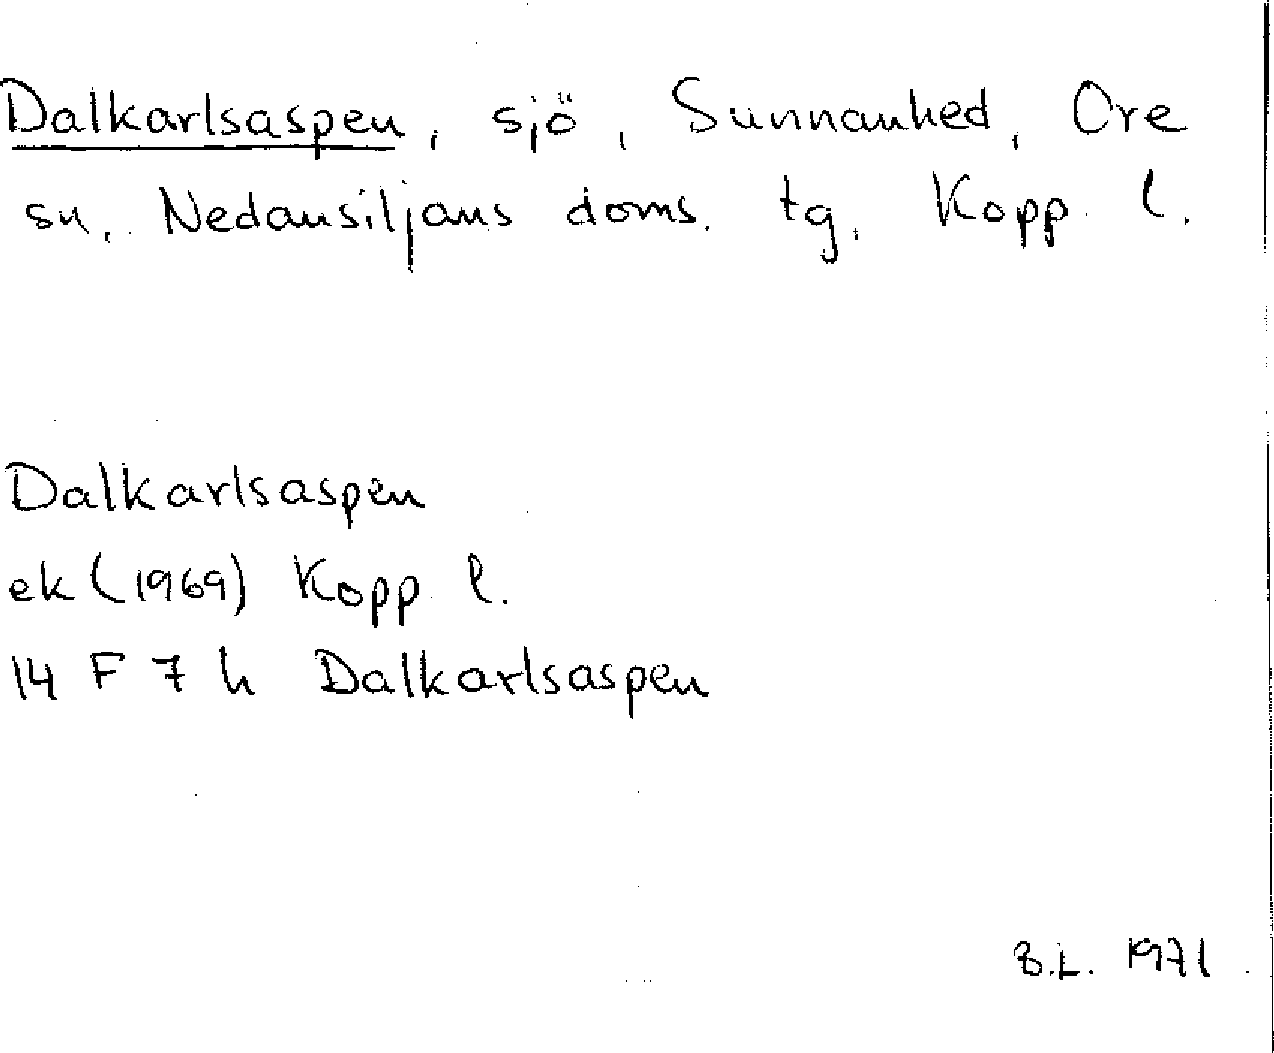 Dalkarlsaspen, sjö, Sunnanhed, Ore
sn, Nedansiljans doms. tg, Kopp. l.
Dalkarlsaspen
ek (1969) Kopp l.
14 F 7 h Dalkarlsaspen
B.L. 1971